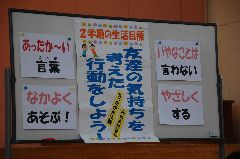 ２学期の生活目標
友達の気持ちを
考えた
行動をしよう！
あったか～い
言葉
なかよく
あそぶ！
いやなことは
言わない
やさしく
する